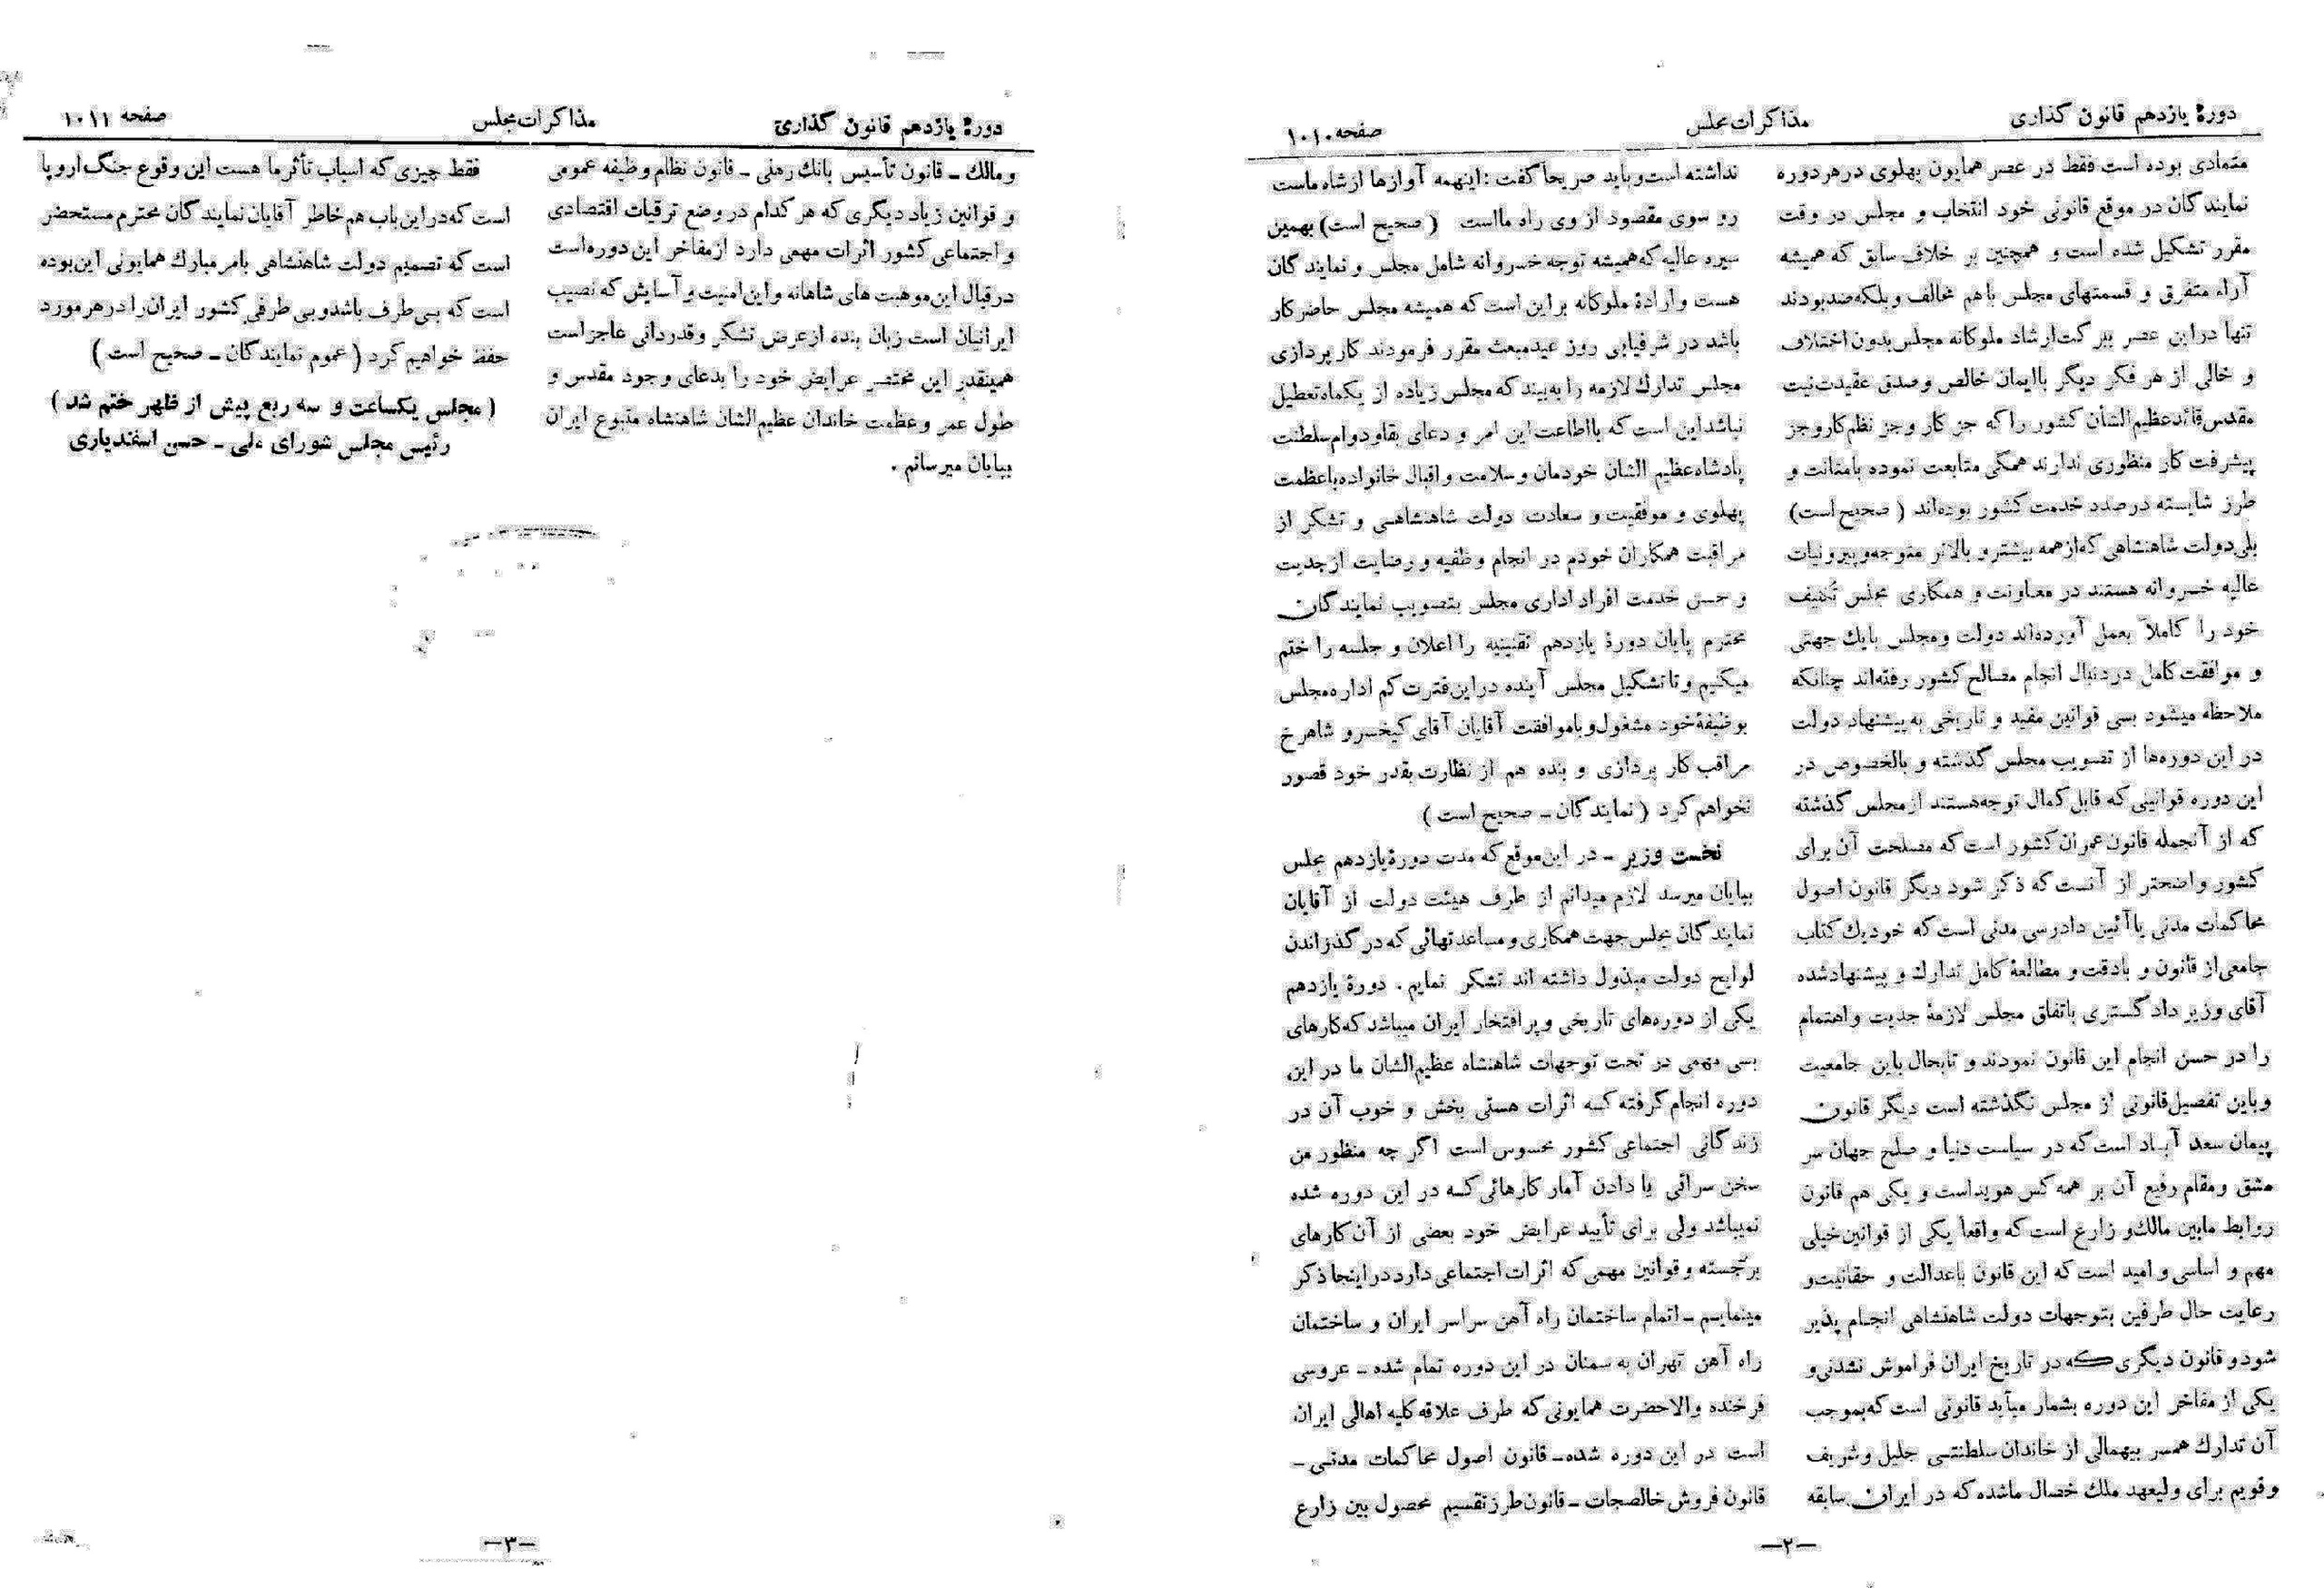 دورهٔ یازدهم قانون گذاری
مذاکرات مجلس
صفحه ۱۰۱۰
متمادی بوده است فقط در عصر همایون پهلوی در هر دوره
نمایندگان در موقع قانونی خود انتخاب و مجلس در وقت
مقرر تشکیل شده است و همچنین بر خلاف سابق که همیشه
آراء متفرق و قسمتهای مجلس باهم مخالف و بلکه ضد بودند
تنها در این عصر ببرکت ارشاد ملوکانه مجلس بدون اختلاف
و خالی از هر فکر دیگر باایمان خالص و صدق عقیدت نیت
مقدس قائد عظیم الشأن کشور را که جز کار و جز نظم کار و جز
پیشرفت کار منظوری ندارند همگی متابعت نموده بامتانت و
طرز شایسته در صدد خدمت کشور بوده‌اند ( صحیح است)
بلی دولت شاهنشاهی که از همه بیشتر و بالاتر متوجه و پیرو نیات
عالیه خسروانه هستند در معاونت و همکاری مجلس تکلیف
خود را کاملاً بعمل آورده‌اند دولت و مجلس بایک جهتی
و موافقت کامل در دنبال انجام مصالح کشور رفته‌اند چنانکه
ملاحظه میشود بسی قوانین مفید و تاریخی به پیشنهاد دولت
در این دوره‌ها از تصویب مجلس گذشته و بالخصوص در
این دوره قوانینی که قابل کمال توجه هستند از مجلس گذشته
که از آنجمله قانون عمران کشور است که مصلحت آن برای
کشور واضحتر از آنست که ذکر شود دیگر قانون اصول
محاکمات مدنی یا آئین دادرسی مدنی است که خود یك کتاب
جامعی از قانون و بادقت و مطالعهٔ کامل تدارك و پیشنهاد شده
آقای وزیر دادگستری باتفاق مجلس لازمهٔ جدیت و اهتمام
را در حسن انجام این قانون نمودند و تابحال باین جامعیت
و باین تفصیل قانونی از مجلس نگذشته است دیگر قانون
پیمان سعد آباد است که در سیاست دنیا و صلح جهان سر
مشق و مقام رفیع آن بر همه کس هویداست و یکی هم قانون
روابط مابین مالك و زارع است که واقعاً یکی از قوانین خیلی
مهم و اساسی و امید است که این قانون باعدالت و حقانیت و
رعایت حال طرفین بتوجهات دولت شاهنشاهی انجام پذیر
شود و قانون دیگری که در تاریخ ایران فراموش نشدنی و
یکی از مفاخر این دوره بشمار میآید قانونی است که بموجب
آن تدارك همسر بیهمالی از خاندان سلطنتی جلیل و شریف
و قویم برای ولیعهد ملك خصال ما شده که در ایران سابقه
نداشته است و باید صریحاً گفت : اینهمه آوازها از شاه ماست
رو سوی مقصود از وی راه ما است ( صحیح است) بهمین
سیره عالیه که همیشه توجه خسروانه شامل مجلس و نمایندگان
هست و ارادهٔ ملوکانه بر این است که همیشه مجلس حاضر کار
باشد در شرفیابی روز عید مبعث مقرر فرمودند کارپردازی
مجلس تدارك لازمه را به بیند که مجلس زیاده از یکماه تعطیل
نباشد این است که بااطاعت این امر و دعای بقاو دوام سلطنت
پادشاه عظیم الشان خودمان و سلامت و اقبال خانواده باعظمت
پهلوی و موفقیت و سعادت دولت شاهنشاهی و تشکر از
مراقبت همکاران خودم در انجام وظفیه و رضایت از جدیت
و حسن خدمت افراد اداری مجلس بتصویب نمایندگان
محترم پایان دورهٔ یازدهم تقنینیه را اعلان و جلسه را ختم
میکنیم و تا تشکیل مجلس آینده در این فترت کم اداره مجلس
بوظیفهٔ خود مشغول و باموافقت آقایان آقای کیخسرو شاهرخ
مراقب کار پردازی و بنده هم از نظارت بقدر خود قصور
نخواهم کرد ( نمایندگان ـ صحیح است )
نخست وزیر ـ در این موقع که مدت دورهٔ یازدهم مجلس
بپایان میرسد لازم میدانم از طرف هیئت دولت از آقایان
نمایندگان مجلس جهت همکاری و مساعدتهائی که در گذراندن
لوایح دولت مبذول داشته اند تشکر نمایم . دورهٔ یازدهم
یکی از دوره‌های تاریخی و پر افتخار ایران میباشد که کارهای
بسی مهمی در تحت توجهات شاهنشاه عظیم‌الشان ما در این
دوره انجام گرفته که اثرات هستی بخش و خوب آن در
زندگانی اجتماعی کشور محسوس است اگر چه منظور من
سخن سرائی یا دادن آمار کارهائی که در این دوره شده
نمیباشد ولی برای تأیید عرایض خود بعضی از آن کارهای
برجسته و قوانین مهمی که اثرات اجتماعی دارد در اینجا ذکر
مینمایم ـ اتمام ساختمان راه آهن سراسر ایران و ساختمان
راه آهن تهران به سمنان در این دوره تمام شده ـ عروسی
فرخنده والاحضرت همایونی که طرف علاقه کلیه اهالی ایران
است در این دوره شده ـ قانون اصول محاکمات مدنی ـ
قانون فروش خالصجات ـ قانون طرز تقسیم محصول بین زارع
ـ۲ـ
دورهٔ یازدهم قانون گذاری
مذاکرات مجلس
صفحه ۱۰۱۱
و مالك ـ قانون تأسیس بانك رهنی ـ قانون نظام وظیفه عمومی
و قوانین زیاد دیگری که هر کدام در وضع ترقیات اقتصادی
و اجتماعی کشور اثرات مهمی دارد از مفاخر این دوره است
در قبال این موهبت های شاهانه و این امنیت و آسایش که نصیب
ایرانیان است زبان بنده از عرض تشکر و قدردانی عاجز است
همینقدر این مختصر عرایض خود را بدعای وجود مقدس و
طول عمر و عظمت خاندان عظیم الشان شاهنشاه متبوع ایران
بپایان میرسانم .
فقط چیزی که اسباب تأثر ما هست این وقوع جنگ اروپا
است که در این باب هم خاطر آقایان نمایندگان محترم مستحضر
است که تصمیم دولت شاهنشاهی بامر مبارك همایونی این بوده
است که بی طرف باشد و بی طرفی کشور ایران را در هر مورد
حفظ خواهیم کرد ( عموم نمایندگان ـ صحیح است )
( مجلس یکساعت و سه ربع پیش از ظهر ختم شد )
رئیس مجلس شورای ملی ـ حسن اسفندیاری
ـ۳ـ